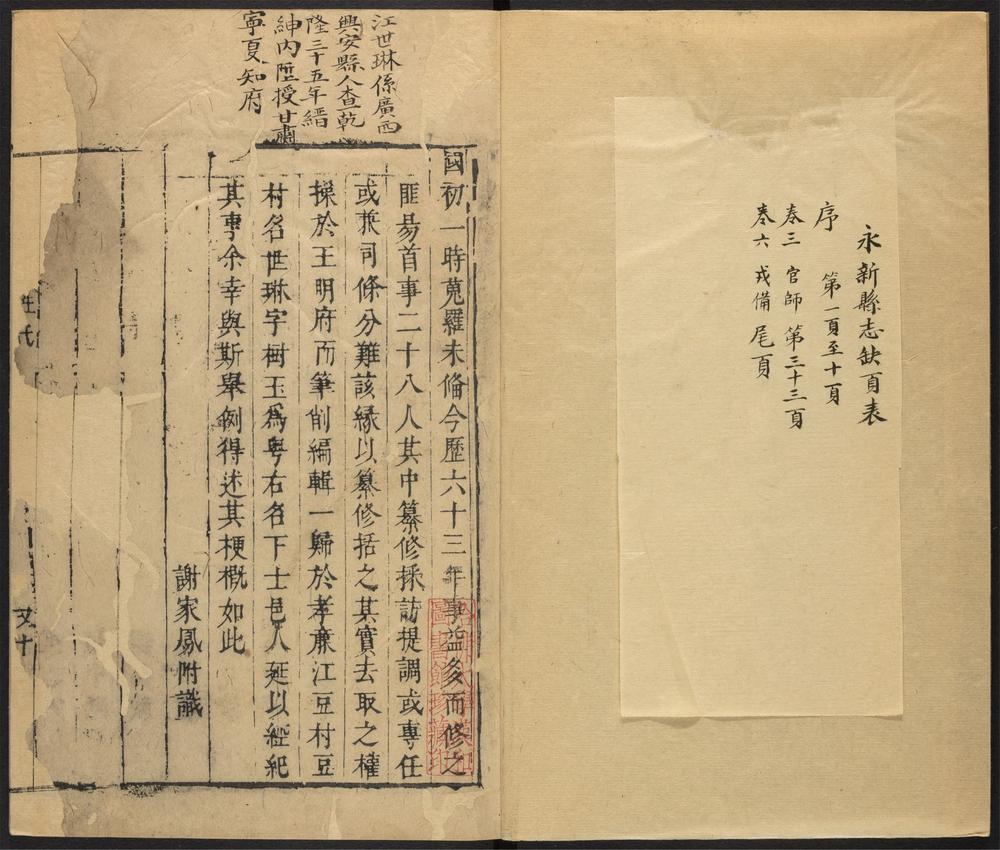 永新縣志缺頁表
序 第一頁至十頁
卷三 官師 第三十三頁
卷六 戎備 尾頁
江世琳係廣西
興安縣人查乾
隆三十五年縉
紳內陞授甘肅
寧夏知府
國初一時蒐羅未僃今歷六十三年事益多而修之
匪易首事二十八人其中纂修採訪提調或專任
或兼司條分難該緣以纂修括之其實去取之權
操於王明府而筆削編輯一歸於孝亷江豆村豆
村名世琳字樹玉爲粤右名下士邑人延以經紀
其事余幸與斯舉例得述其梗槪如此
謝家鳳附識
又十